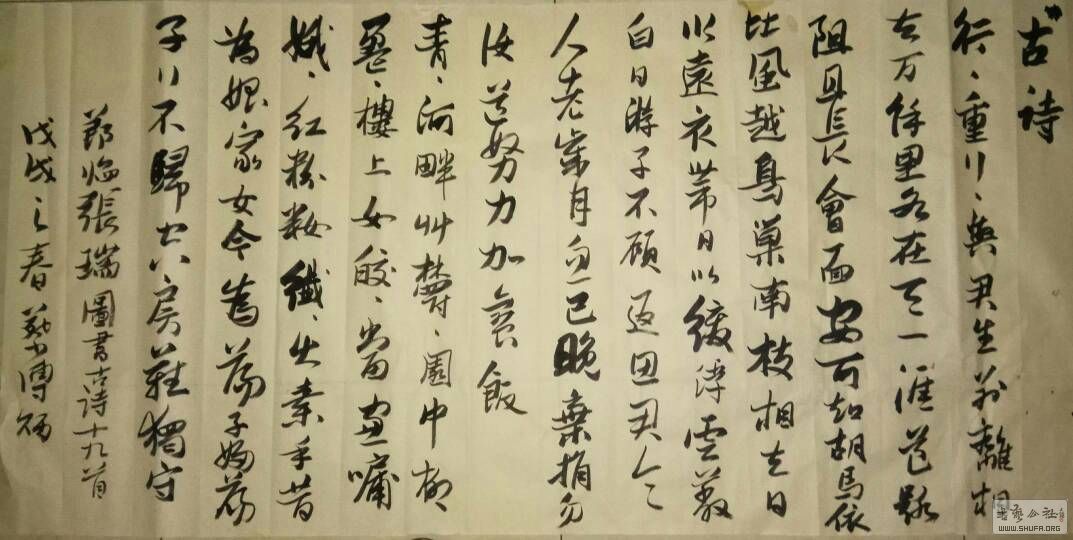 古诗
行〻重行〻與君生别離相
去万馀里各在天一涯道路
阻且長會面安可知胡馬依
北風越鳥巢南枝相去日
以遠衣帶日以緩浮雲蔽
白日游子不顾返思君令
人老歲月忽已晚棄捐勿
復道努力加餐飯
青〻河畔艸欝〻園中柳
盈〻樓上女皎〻當窗牖
娥〻红粉妝纖〻出素手昔
為娼家女今為蕩子婦蕩
子行不歸空房難獨守
節临張瑞圖書古诗十九首
戊戌之春
书艺公社
WWW.SHUFA.ORG